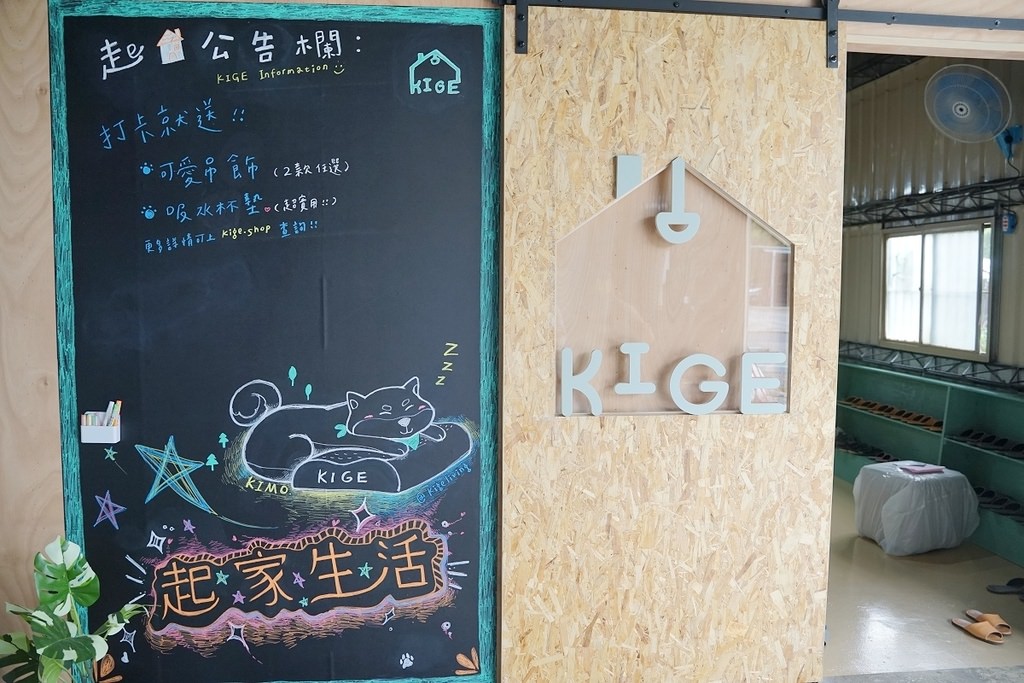 起家公告欄：
KIGE Information
KIGE
打卡就送!!
可愛吊飾（2款任選）
吸水杯墊（超實用!!）
更多詳情可上 kige.shop 查詢!!
z
z
z
KIGE
KIMO
@kigeliving
起家生活
KIGE